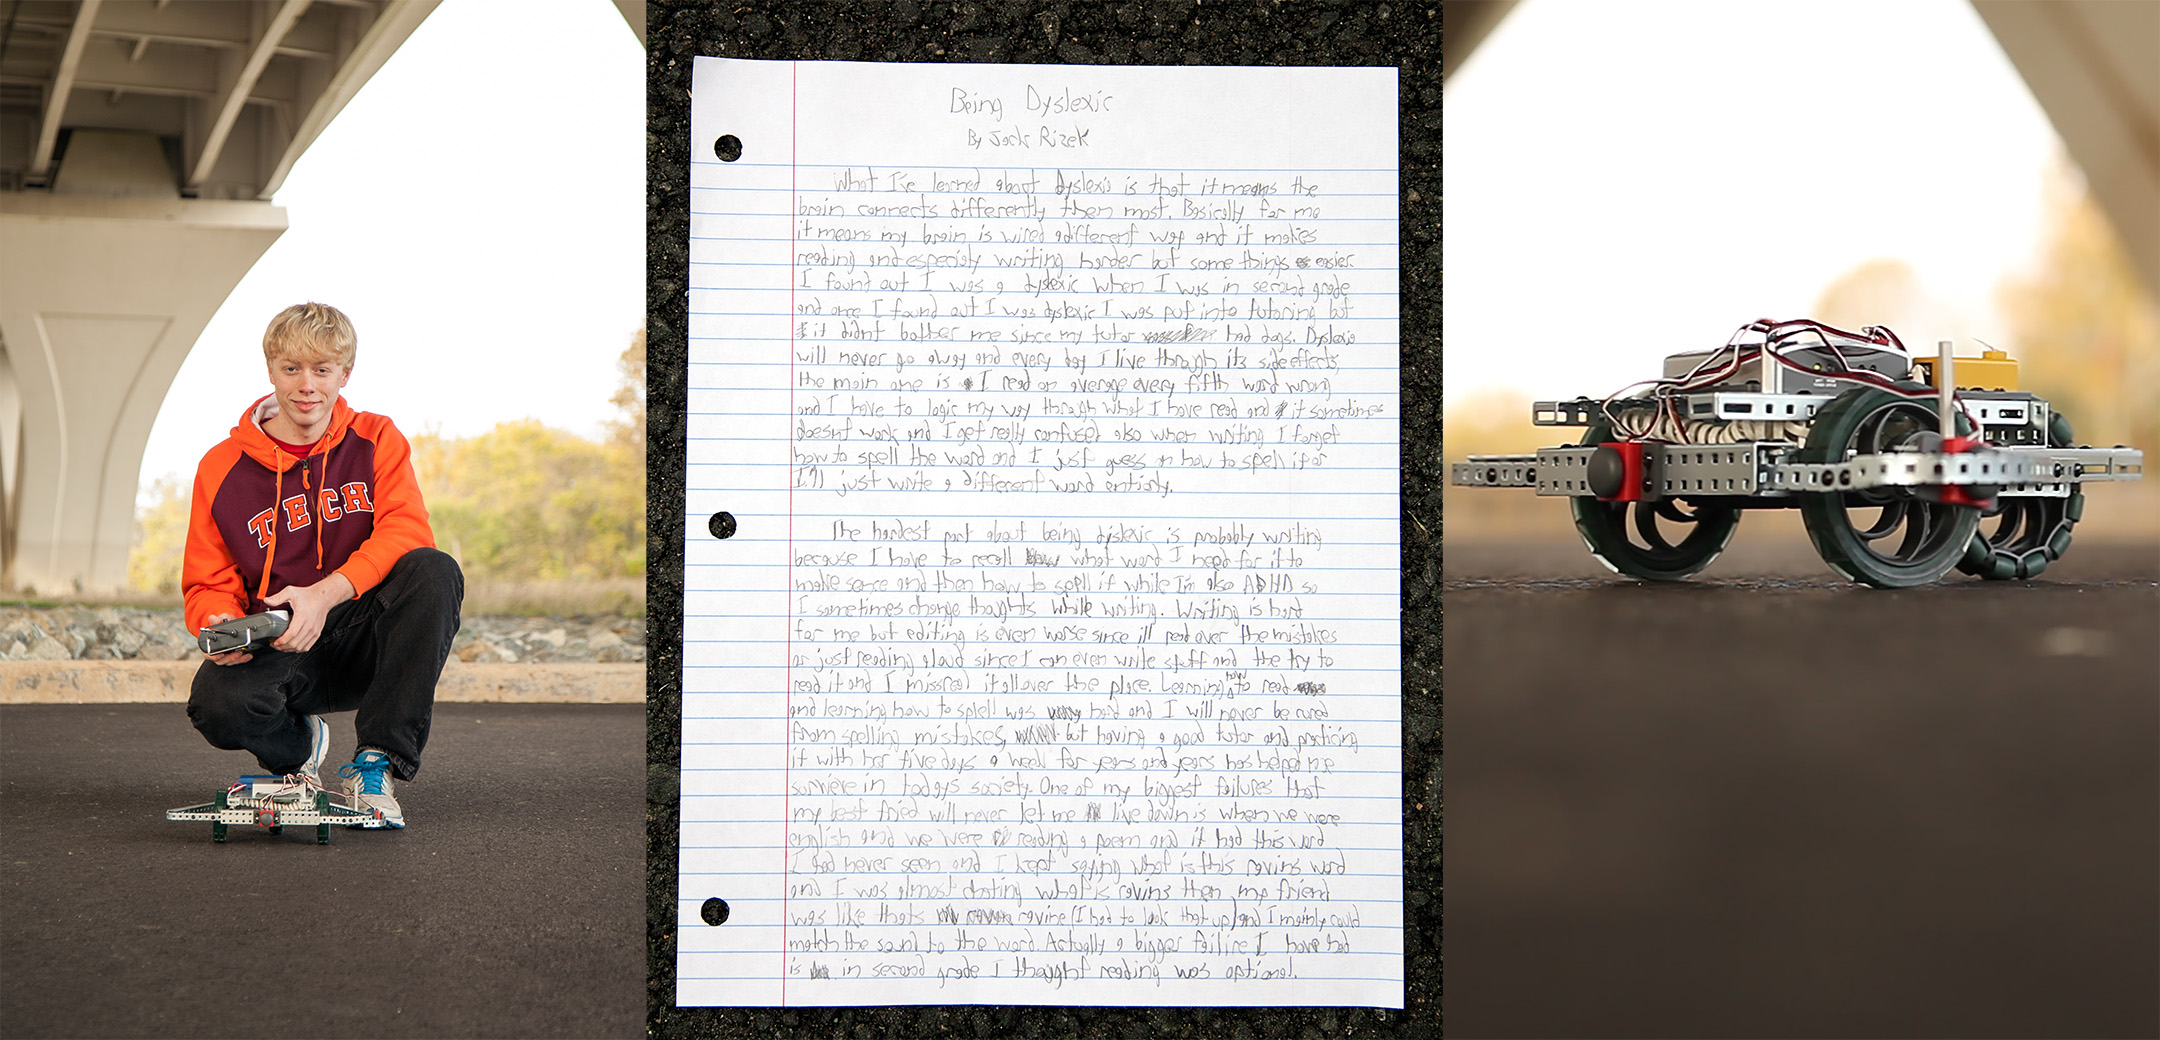 TECH
Being Dyslexic
By Jack Rizek
What I've learned about dyslexia is that it means the
brain connects differently then most. Basically for me
it means my brain is wired a different way and it makes
reading and especialy writing harder but some things easier.
I found out I was a dyslexic when I was in second grade
and once I found out I was dyslexic I was put into tutoring but
it didnt bother me since my tutor had dogs. Dyslexia
will never go away and every day I live through its side effects,
the main one is I read on average every fifth word wrong
and I have to logic my way through what I have read and it sometimes
doesnt work and I get really confused also when writing I forget
how to spell the word and I just guess on how to spell it or
I'll just write a different word entirly.
The hardest part about being dyslexic is probably writing
because I have to recall what word I need for it to
make sence and then how to spell it while I'm also ADHD so
I sometimes change thoughts while writing. Writing is hard
for me but editing is even worse since ill read over the mistakes
or just reading aloud since I can even write stuff and the try to
read it and I missread it all over the place. Learning how to read
and learning how to splell was hard and I will never be cured
from spelling mistakes, but having a good tutor and practicing
it with her five days a week for years and years has helped me
survive in todays society. One of my biggest failures that
my best fried will never let me live down is when we were
english and we were reading a poem and it had this word
I had never seen and I kept saying what is this ravins word
and I was almost chating what is ravins then my friend
was like thats ravine (I had to look that up) and I mainly could
match the sound to the word. Actually a bigger failire I have had
is in second grade I thought reading was optional.